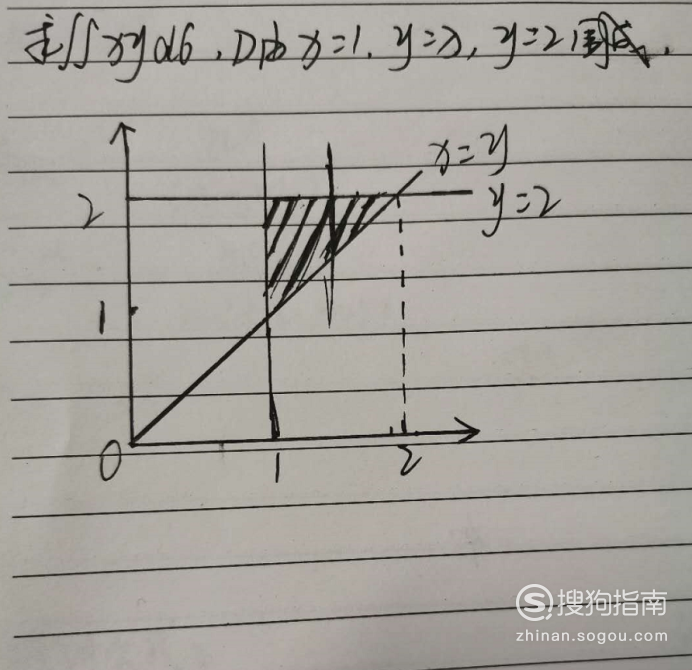 求∬xydσ,D由x=1,y=x,y=2围成.
x=y
2
y=2
1
0
1
2
搜狗指南
zhinan.sogou.com